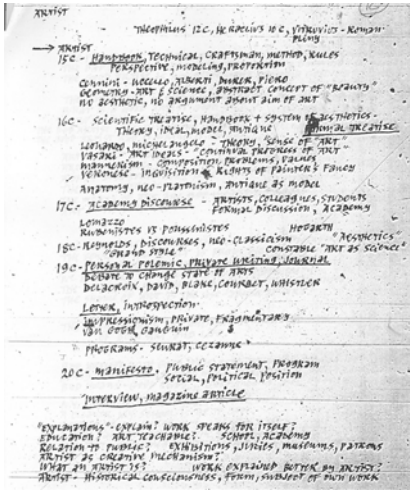 ARTIST
THEOPHILUS 12C, HERACLIUS 10C, VITRUVIUS - ROMAN
PLINY
→ ARTIST
15C - HANDBOOK, TECHNICAL, CRAFTSMAN, METHOD, RULES
PERSPECTIVE, MODELING, PROPORTION
CENNINI - UCCELLO, ALBERTI, DURER, PIERO
GEOMETRY - ART & SCIENCE, ABSTRACT CONCEPT OF "BEAUTY"
NO AESTHETIC, NO ARGUMENT ABOUT AIM OF ART
16C - SCIENTIFIC TREATISE, HANDBOOK + SYSTEM OF AESTHETICS -
THEORY, IDEAL, MODEL, ANTIQUE FORMAL TREATISE
LEONARDO, MICHELANGELO - THEORY, "SENSE OF "ART"
VASARI - ART IDEALS - "CONTINUAL PROGRESS OF ART"
MANNERISM - COMPOSITION, PROBLEMS, VALUES
VERONESE - INQUISITION RIGHTS OF PAINTER'S FANCY
ANATOMY, NEO-PLATONISM, ANTIQUE AS MODEL
17C - ACADEMY DISCOURSE - ARTISTS, COLLEAGUES, STUDENTS
FORMAL DISCUSSION, ACADEMY
LOMAZZO
RUBENISTES VS POUSSINISTES HOGARTH "AESTHETICS"
18C - REYNOLDS, DISCOURSES, NEO-CLASSICISM CONSTABLE "ART AS SCIENCE"
"GRAND STYLE"
19C - PERSONAL POLEMIC, PRIVATE WRITING, JOURNAL
DEBATE TO CHANGE STATE OF ARTS
DELACROIX, DAVID, BLAKE, COURBET, WHISTLER
LETTER, INTROSPECTION
IMPRESSIONISM, PRIVATE, FRAGMENTARY
VAN GOGH, GAUGUIN
PROGRAMS - SEURAT, CEZANNE
20C - MANIFESTO - PUBLIC STATEMENT, PROGRAM
SOCIAL, POLITICAL POSITION
INTERVIEW, MAGAZINE ARTICLE
"EXPLANATIONS" - EXPLAIN? WORK SPEAKS FOR ITSELF?
EDUCATION? ART TEACHABLE? SCHOOL, ACADEMY
RELATION TO PUBLIC? EXHIBITIONS, JURIES, MUSEUMS, PATRONS
ARTIST AS CREATIVE MECHANISM?
WHAT AN ARTIST IS? WORK EXPLAINED BETTER BY ARTIST?
ARTIST - HISTORICAL CONSCIOUSNESS, FORM, SUBJECT OF OWN WORK